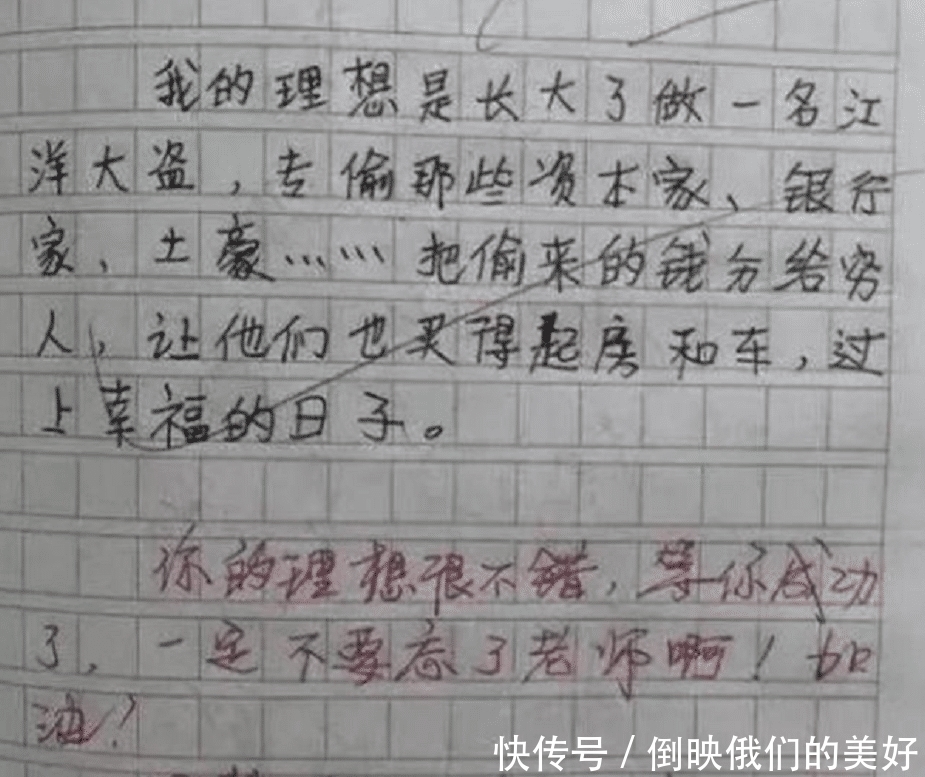 我的理想是长大了做一名江
洋大盗，专偷那些资本家、银行
家、土豪……把偷来的钱分给穷
人，让他们也买得起房和车，过
上幸福的日子。
你的理想很不错，等你成功
了，一定不要忘了老师啊！加
油！
快传号/倒映俄们的美好